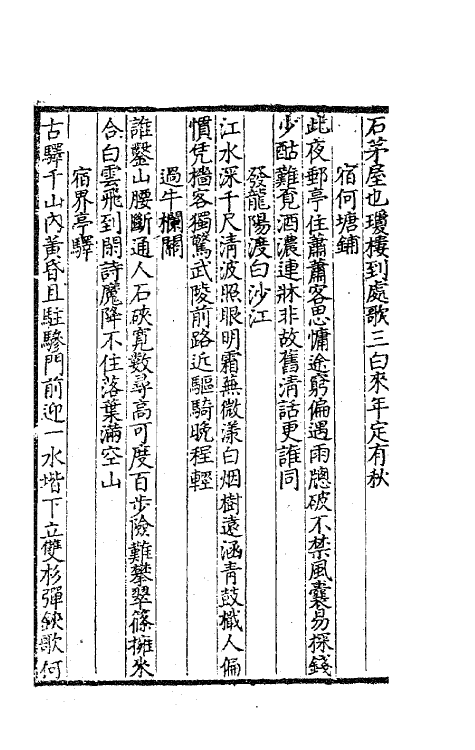 石茅屋也瓊樓到處歌三白來年定有秋
宿何塘鋪
此夜郵亭住蕭蕭客思慵途窮偏遇雨牎破不禁風囊易探錢
少酤難覓酒濃連牀非故舊清話更誰同
發龍陽渡白沙江
江水深千尺清波照眼明霜蕪微漾白烟樹遠涵青鼓檝人偏
慣凭檣客獨驚武陵前路近驅騎晚程輕
過牛欄關
誰鑿山腰斷通人石硤寬數尋高可度百步險難攀翠篠擁來
合白雲飛到閑詩魔降不住落葉滿空山
宿界亭驛
古驛千山內黃昏且駐驂門前迎一水堦下立雙杉彈鋏歌何